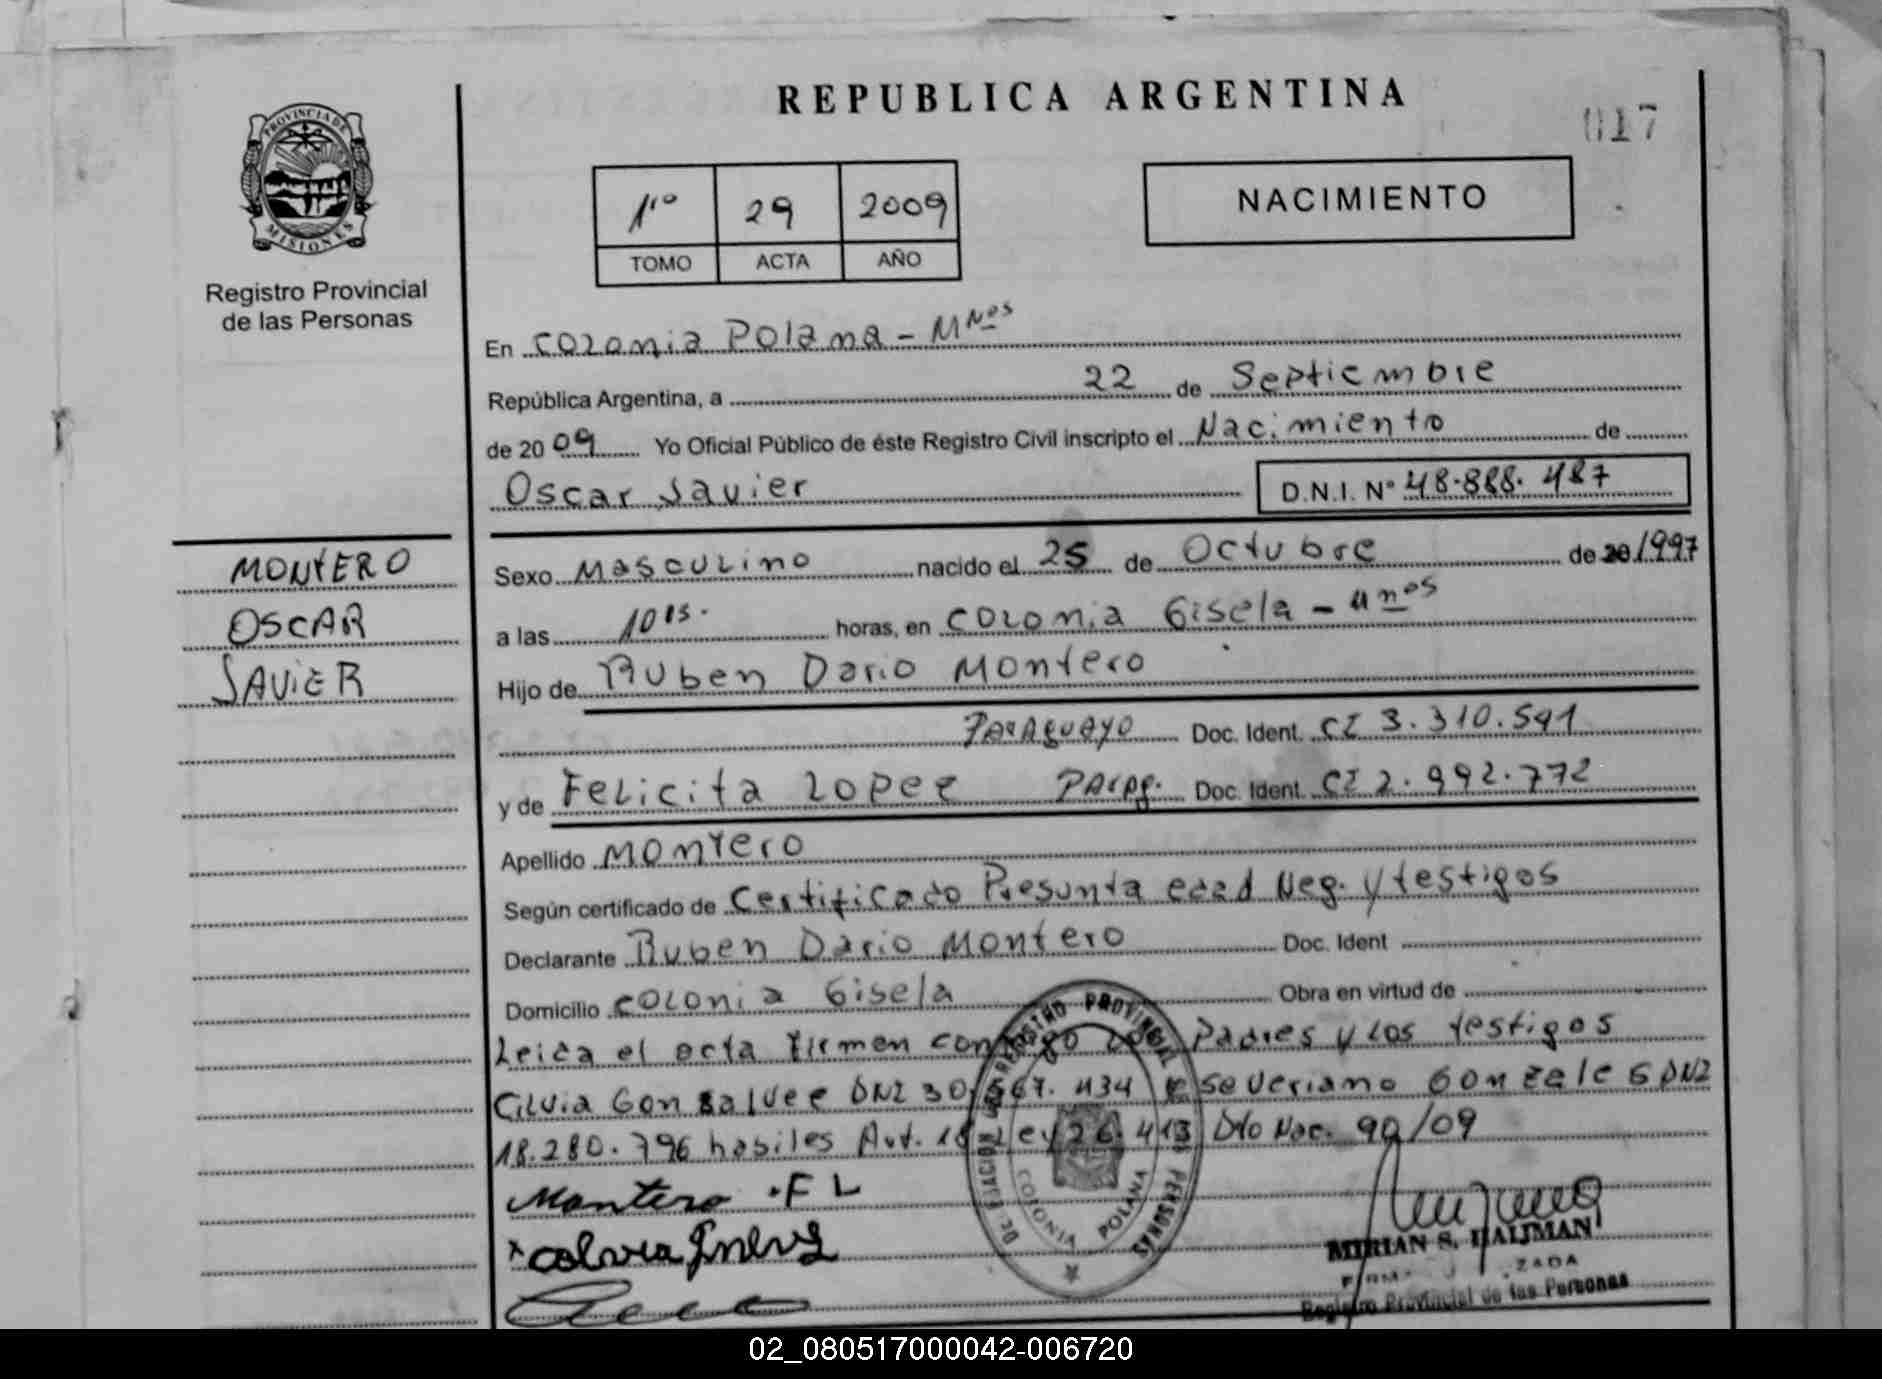 REPUBLICA ARGENTINA
017
PROVINCIA DE
MISIONES
Registro Provincial
de las Personas
1ro 29 2009
TOMO ACTA AÑO
NACIMIENTO
En Colonia Polana - Mnes
República Argentina, a 22 de Septiembre
de 20 09 Yo Oficial Público de éste Registro Civil inscripto el Nacimiento de
Oscar Javier D.N.I. Nº 48.888.487
MONTERO
OSCAR
JAVIER
Sexo Masculino nacido el 25 de Octubre de 20 1997
a las 10 15. horas, en Colonia Gisela - Mnes
Hijo de Ruben Dario Montero
PARAGUAYO Doc. Ident. CI 3.310.541
y de Felicita Lopez Parag. Doc. Ident. CI 2.992.772
Apellido Montero
Según certificado de Certificado Presunta edad Neg. y testigos
Declarante Ruben Dario Montero Doc. Ident
Domicilio Colonia Gisela Obra en virtud de
Leida el acta firman conmigo los Padres y los testigos
Cilvia Gonsalvez DNI 30.567.434 y Severiano Gonzales DNI
18.280.796 habiles Aut. Ley 26.413 Dto Nac. 90/09
Montero .FL
REGISTRO PROVINCIAL DE LAS PERSONAS
COLONIA POLANA
MIRIAN S. HALJMAN
Registro Provincial de las Personas
02_080517000042-006720